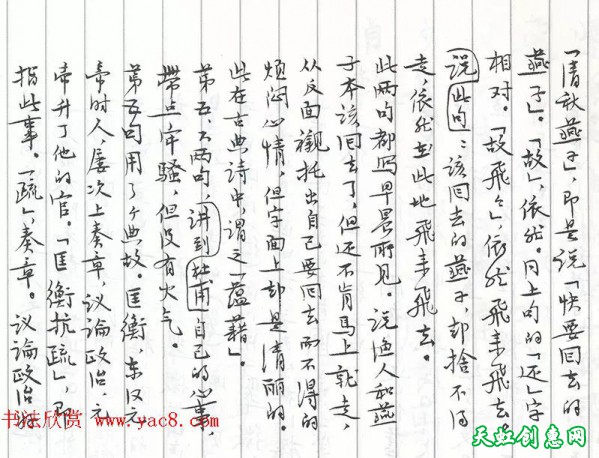 「清秋燕子」,即是说「快要回去的
燕子」。「故」,依然。同上句的「还」字
相对。「故飞飞」,依然飞来飞去。
说此句:该回去的燕子,却捨不得
走,依然在此地飞来飞去。
此两句都写早晨所见。说渔人和燕
子本该回去了,但还不肯马上就走,
从反面衬托出自己要回去而不得的
烦闷心情,但字面上却是清丽的。
此在古典诗中,谓之「蕴藉」。
第五、六两句,讲到杜甫自己的心事,
带点牢骚,但没有火气。
第五句用了个典故。匡衡,东汉元
帝时人,屡次上奏章,议论政治,元
帝升了他的官。「匡衡抗疏」,即
指此事。「疏」,奏章。议论政治的
书法欣赏 www.yac8.com
天虹创意网